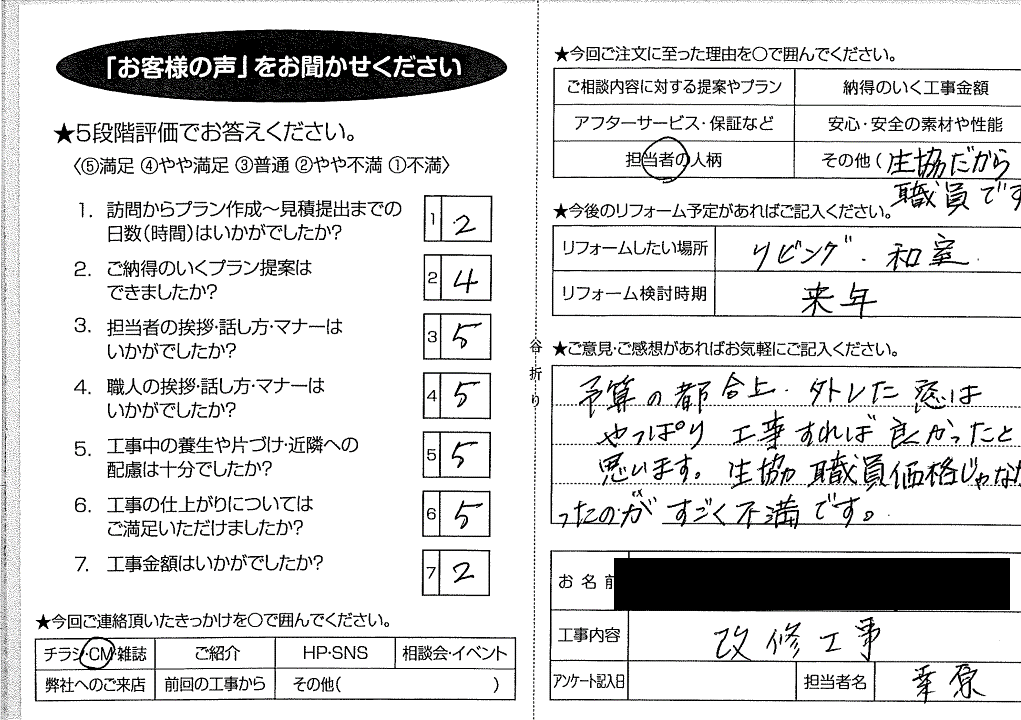 「お客様の声」をお聞かせください
★5段階評価でお答えください。
〈⑤満足 ④やや満足 ③普通 ②やや不満 ①不満〉
1. 訪問からプラン作成～見積提出までの
日数(時間)はいかがでしたか？
1 2
2. ご納得のいくプラン提案は
できましたか？
2 4
3. 担当者の挨拶・話し方・マナーは
いかがでしたか？
3 5
4. 職人の挨拶・話し方・マナーは
いかがでしたか？
4 5
5. 工事中の養生や片づけ・近隣への
配慮は十分でしたか？
5 5
6. 工事の仕上がりについては
ご満足いただけましたか？
6 5
7. 工事金額はいかがでしたか？
7 2
★今回ご連絡頂いたきっかけを○で囲んでください。
チラシ・CM・雑誌 ご紹介 HP・SNS 相談会・イベント
弊社へのご来店 前回の工事から その他( )
谷折り
★今回ご注文に至った理由を○で囲んでください。
ご相談内容に対する提案やプラン 納得のいく工事金額
アフターサービス・保証など 安心・安全の素材や性能
担当者の人柄 その他(生協だから
職員です
★今後のリフォーム予定があればご記入ください。
リフォームしたい場所 リビング・和室
リフォーム検討時期 来年
★ご意見・ご感想があればお気軽にご記入ください。
予算の都合上・外トレた窓は
やっぱり工事すれば良かったと
思います。生協職員価格じゃなか
ったのがすごく不満です。
お名前
工事内容 改修工事
アンケート記入日 担当者名 原